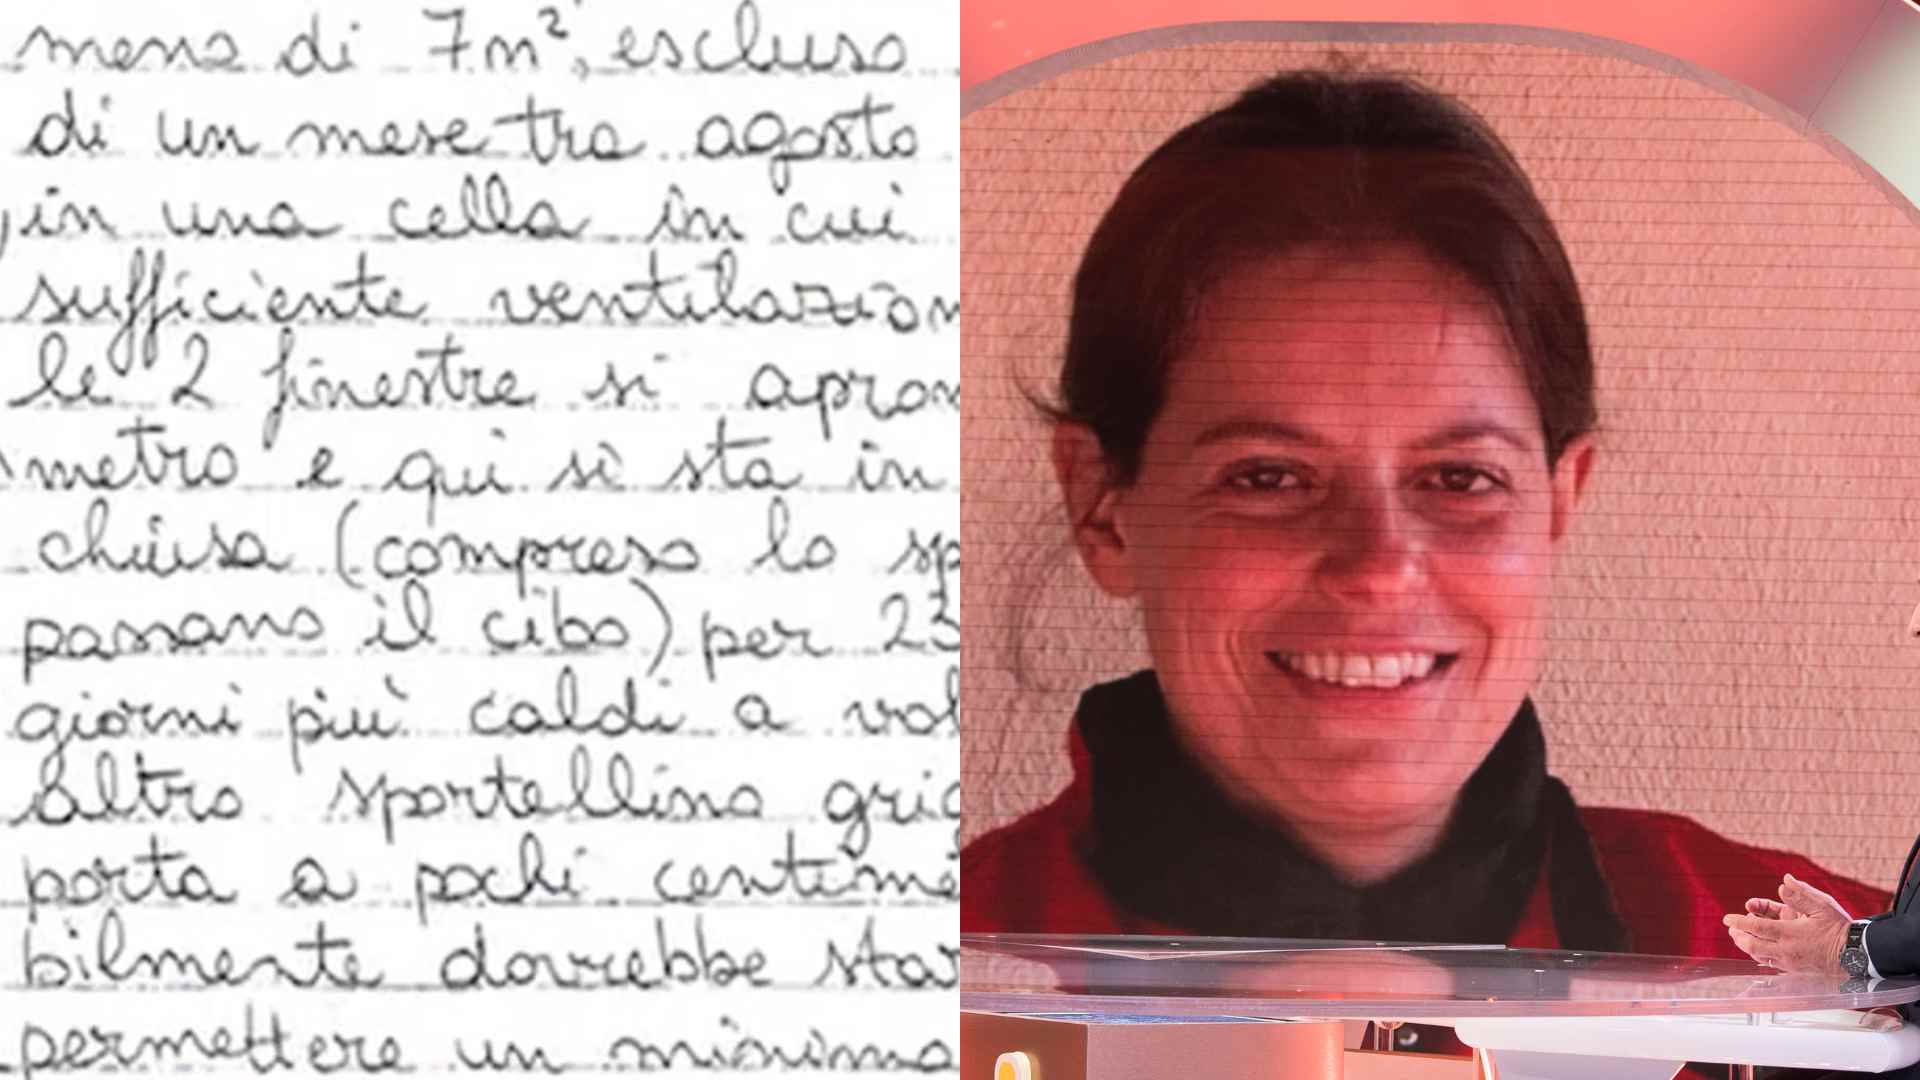 meno di 7m², escluso
di un mese tra agosto
, in una cella in cui
sufficiente ventilazion
le 2 finestre si apron
metro e qui si sta in
chiusa (compreso lo sp
passano il cibo) per 23
giorni più caldi a vol
altro sportellino grig
porta a pochi centime
bilmente dovrebbe star
permettere un minimo